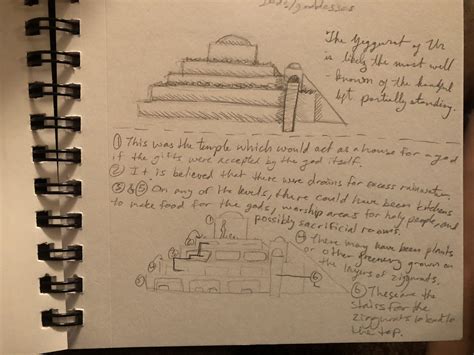 gods/goddesses
The Ziggurat of Ur
is likely the most well
-known of the handful
left partially standing.
① This was the temple which would act as a house for a god
if the gifts were accepted by the god itself.
② It is believed that there were drains for excess rainwater.
③ & ⑤ On any of the levels, there could have been kitchens
to make food for the gods, worship areas for holy people, and
possibly sacrificial rooms.
④ There may have been plants
or other greenery grown on
the layers of ziggurats.
⑥ These are the
stairs for the
ziggurats
the top.
① ② ③ ④ ⑤ ⑥